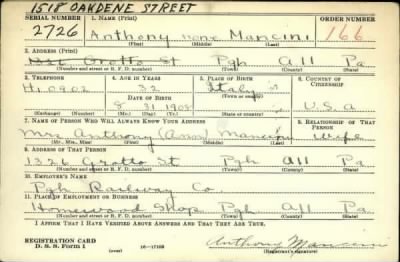 1518 OAKDENE STREET
SERIAL NUMBER 1. NAME (Print) ORDER NUMBER
2726 Anthony none Mancini 166
(First) (Middle) (Last)
2. ADDRESS (Print)
1326 Grotto St Pgh All Pa
(Number and street or R. F. D. number) (Town) (County) (State)
3. TELEPHONE 4. AGE IN YEARS 5. PLACE OF BIRTH 6. COUNTRY OF CITIZENSHIP
Hi 0902 32 Italy
DATE OF BIRTH (Town or county)
8 31 1908 U.S.A
(Exchange) (Number) (Mo.) (Day) (Yr.) (State or country)
7. NAME OF PERSON WHO WILL ALWAYS KNOW YOUR ADDRESS RELATIONSHIP OF THAT PERSON
Mrs Anthony (Anna) Mancini Wife
(Mr., Mrs., Miss) (First) (Middle) (Last)
8. ADDRESS OF THAT PERSON
1326 Grotto St Pgh All Pa
(Number and street or R. F. D. number) (Town) (County) (State)
10. EMPLOYER'S NAME
Pgh Railway Co.
11. PLACE OF EMPLOYMENT OR BUSINESS
Homewood Shop Pgh All Pa
(Number and street or R. F. D. number) (Town) (County) (State)
I AFFIRM THAT I HAVE VERIFIED ABOVE ANSWERS AND THAT THEY ARE TRUE.
REGISTRATION CARD
D. S. S. Form 1 (over) 16—17105 Anthony Mancini
(Registrant's signature)